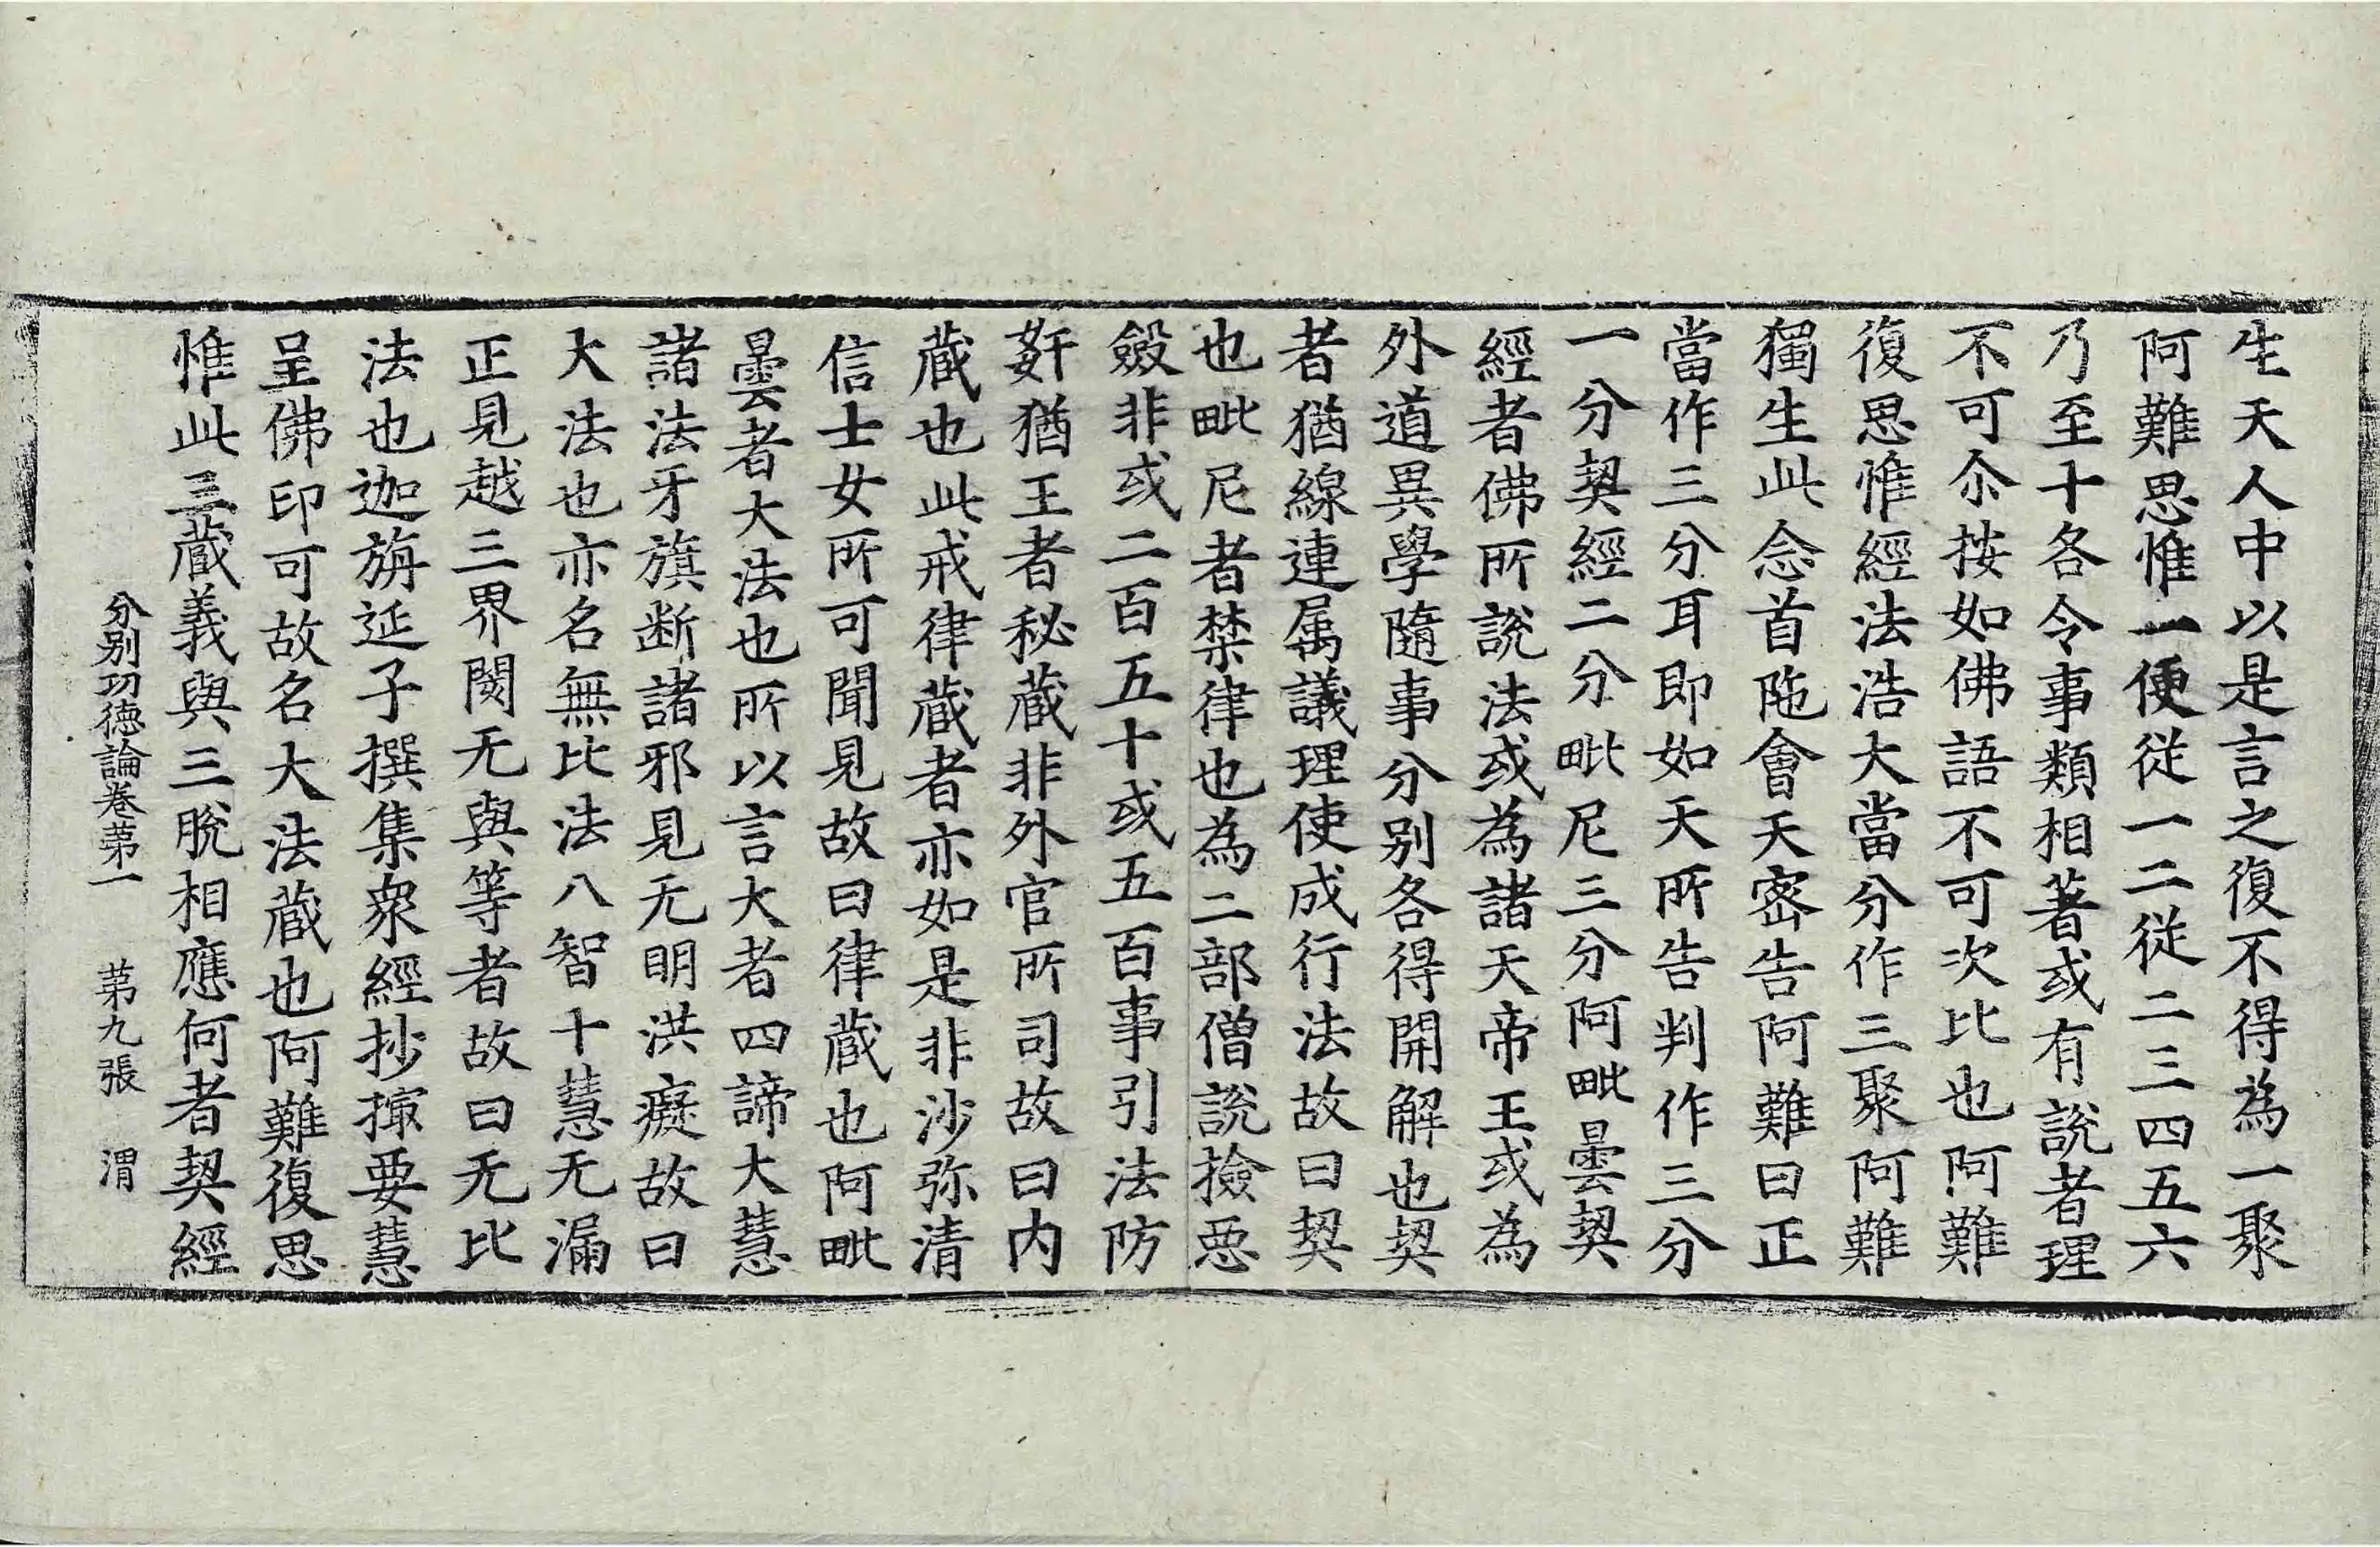 生天人中以是言之復不得為一聚
阿難思惟一便從一二從二三四五六
乃至十各令事類相著或有說者理
不可尒按如佛語不可次比也阿難
復思惟經法浩大當分作三聚阿難
獨生此念首陁會天密告阿難曰正
當作三分耳即如天所告判作三分
一分契經二分毗尼三分阿毗曇契
經者佛所說法或為諸天帝王或為
外道異學隨事分別各得開解也契
者猶線連属議理使成行法故曰契
也毗尼者禁律也為二部僧說撿惡
斂非或二百五十或五百事引法防
姧猶王者秘蔵非外官所司故曰内
蔵也此戒律蔵者亦如是非沙弥清
信士女所可聞見故曰律蔵也阿毗
曇者大法也所以言大者四諦大慧
諸法牙旗断諸邪見无明洪癡故曰
大法也亦名無比法八智十慧无漏
正見越三界閡无與等者故曰无比
法也迦旃延子撰集衆經抄撮要慧
呈佛印可故名大法蔵也阿難復思
惟此三蔵義與三脫相應何者契經
分別功德論卷苐一　苐九張　渭